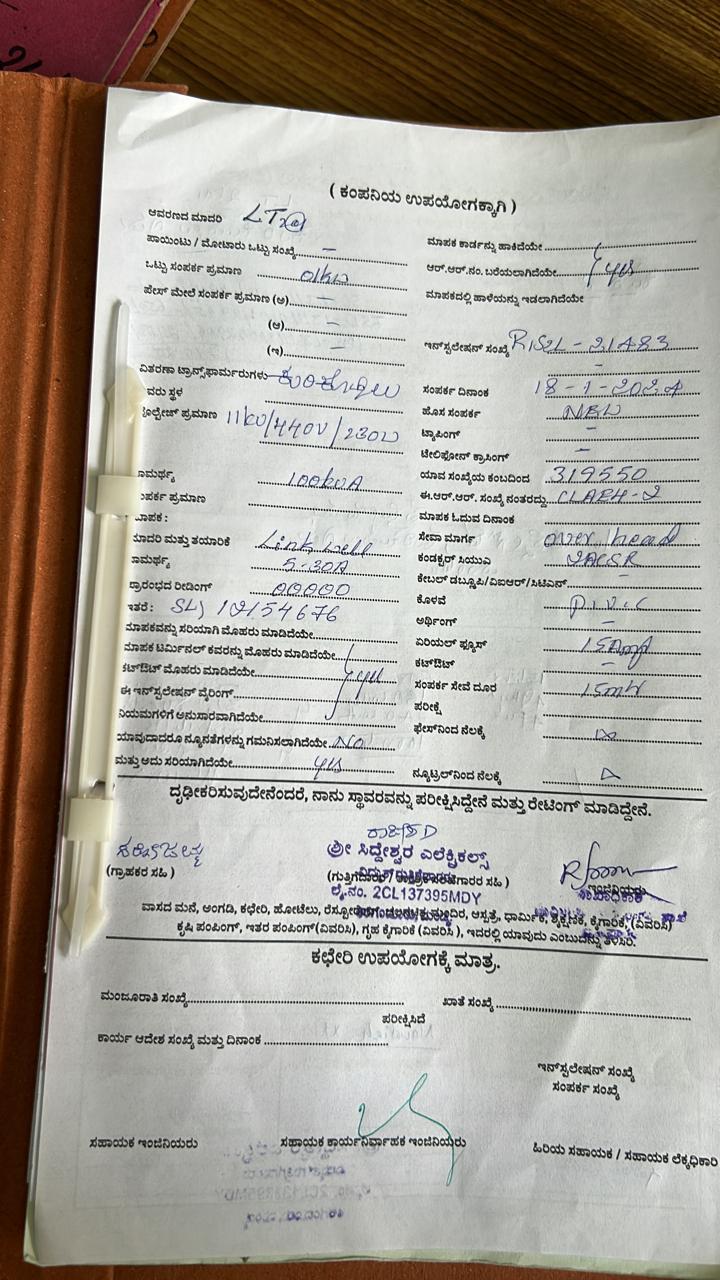 ( ಕಂಪನಿಯ ಉಪಯೋಗಕ್ಕಾಗಿ )
ಆವರಣದ ಮಾದರಿ LT2(a)
ಪಾಯಿಂಟು / ಮೋಟಾರು ಒಟ್ಟು ಸಂಖ್ಯೆ –
ಒಟ್ಟು ಸಂಪರ್ಕ ಪ್ರಮಾಣ 01kW
ಪೇಸ್ ಮೇಲೆ ಸಂಪರ್ಕ ಪ್ರಮಾಣ (ಅ) –
(ಆ) –
(ಇ) –
ವಿತರಣಾ ಟ್ರಾನ್ಸ್‌ಫಾರ್ಮರುಗಳು
ವರು ಸ್ಥಳ
ವೋಲ್ಟೇಜ್ ಪ್ರಮಾಣ 11kV/440V/230V
ಾಮರ್ಥ್ಯ 100kVA
ಂಪರ್ಕ ಪ್ರಮಾಣ
ಮಾಪಕ :
ಮಾದರಿ ಮತ್ತು ತಯಾರಿಕೆ Link well
ಾಮರ್ಥ್ಯ 5-30A
ಪ್ರಾರಂಭದ ರೀಡಿಂಗ್ 00000
ಇತರೆ : SL) 12154676
ಮಾಪಕವನ್ನು ಸರಿಯಾಗಿ ಮೊಹರು ಮಾಡಿದೆಯೇ
ಮಾಪಕ ಟರ್ಮಿನಲ್ ಕವರನ್ನು ಮೊಹರು ಮಾಡಿದೆಯೇ
ಕಟ್‌ಔಟ್ ಮೊಹರು ಮಾಡಿದೆಯೇ yes
ಈ ಇನ್‌ಸ್ಟಲೇಷನ್ ವೈರಿಂಗ್
ನಿಯಮಗಳಿಗೆ ಅನುಸಾರವಾಗಿದೆಯೇ
ಯಾವುದಾದರೂ ನ್ಯೂನತೆಗಳನ್ನು ಗಮನಿಸಲಾಗಿದೆಯೇ No
ಮತ್ತು ಅದು ಸರಿಯಾಗಿದೆಯೇ yes
ಮಾಪಕ ಕಾರ್ಡನ್ನು ಹಾಕಿದೆಯೇ
ಆರ್.ಆರ್.ನಂ. ಬರೆಯಲಾಗಿದೆಯೇ yes
ಮಾಪಕದಲ್ಲಿ ಹಾಳೆಯನ್ನು ಇಡಲಾಗಿದೆಯೇ
ಇನ್‌ಸ್ಟಲೇಷನ್ ಸಂಖ್ಯೆ RISZL-21483
–
ಸಂಪರ್ಕ ದಿನಾಂಕ 18-1-2024
ಹೊಸ ಸಂಪರ್ಕ NEW
ಟ್ಯಾಪಿಂಗ್ –
ಟೆಲಿಫೋನ್ ಕ್ರಾಸಿಂಗ್ –
ಯಾವ ಸಂಖ್ಯೆಯ ಕಂಬದಿಂದ 319550
ಈ.ಆರ್.ಆರ್. ಸಂಖ್ಯೆ ನಂತರದ್ದು
ಮಾಪಕ ಓದುವ ದಿನಾಂಕ
ಸೇವಾ ಮಾರ್ಗ over head
ಕಂಡಕ್ಟರ್ ಸಿಯುಎ
ಕೇಬಲ್ ಡಬ್ಲೂಪಿ/ವಿಐಆರ್/ಸಿಟಿಎಸ್ –
ಕೊಳವೆ P.V.C
ಅರ್ಥಿಂಗ್ –
ಏರಿಯಲ್ ಫ್ಯೂಸ್ 15Amp
ಕಟ್‌ಔಟ್ –
ಸಂಪರ್ಕ ಸೇವೆ ದೂರ 15mtr
ಪರೀಕ್ಷೆ
ಫೇಸ್‌ನಿಂದ ನೆಲಕ್ಕೆ
ನ್ಯೂಟ್ರಲ್‌ನಿಂದ ನೆಲಕ್ಕೆ
ದೃಢೀಕರಿಸುವುದೇನೆಂದರೆ, ನಾನು ಸ್ಥಾವರವನ್ನು ಪರೀಕ್ಷಿಸಿದ್ದೇನೆ ಮತ್ತು ರೇಟಿಂಗ್ ಮಾಡಿದ್ದೇನೆ.
ಶ್ರೀ ಸಿದ್ದೇಶ್ವರ ಎಲೆಕ್ಟ್ರಿಕಲ್ಸ್
(ಗ್ರಾಹಕರ ಸಹಿ ) (ಗುತ್ತಿಗೆದಾರರ ಸಹಿ ) ಇಂಜಿನಿಯರು
ಲೈ.ನಂ. 2CL137395MDY
ವಾಸದ ಮನೆ, ಅಂಗಡಿ, ಕಛೇರಿ, ಹೋಟೆಲು, ಆಸ್ಪತ್ರೆ, ಧಾರ್ಮಿಕ, ಶೈಕ್ಷಣಿಕ, ಕೈಗಾರಿಕೆ, (ವಿವರಿಸಿ)
ಕೃಷಿ ಪಂಪಿಂಗ್, ಇತರ ಪಂಪಿಂಗ್(ವಿವರಿಸಿ), ಗೃಹ ಕೈಗಾರಿಕೆ (ವಿವರಿಸಿ ), ಇದರಲ್ಲಿ ಯಾವುದು ಎಂಬುದನ್ನು ತಿಳಿಸಿರಿ.
ಕಛೇರಿ ಉಪಯೋಗಕ್ಕೆ ಮಾತ್ರ.
ಮಂಜೂರಾತಿ ಸಂಖ್ಯೆ ಖಾತೆ ಸಂಖ್ಯೆ
ಪರೀಕ್ಷಿಸಿದೆ
ಕಾರ್ಯ ಆದೇಶ ಸಂಖ್ಯೆ ಮತ್ತು ದಿನಾಂಕ
ಇನ್‌ಸ್ಟಲೇಷನ್ ಸಂಖ್ಯೆ
ಸಂಪರ್ಕ ಸಂಖ್ಯೆ
ಸಹಾಯಕ ಇಂಜಿನಿಯರು ಸಹಾಯಕ ಕಾರ್ಯನಿರ್ವಾಹಕ ಇಂಜಿನಿಯರು ಹಿರಿಯ ಸಹಾಯಕ / ಸಹಾಯಕ ಲೆಕ್ಕಧಿಕಾರಿ